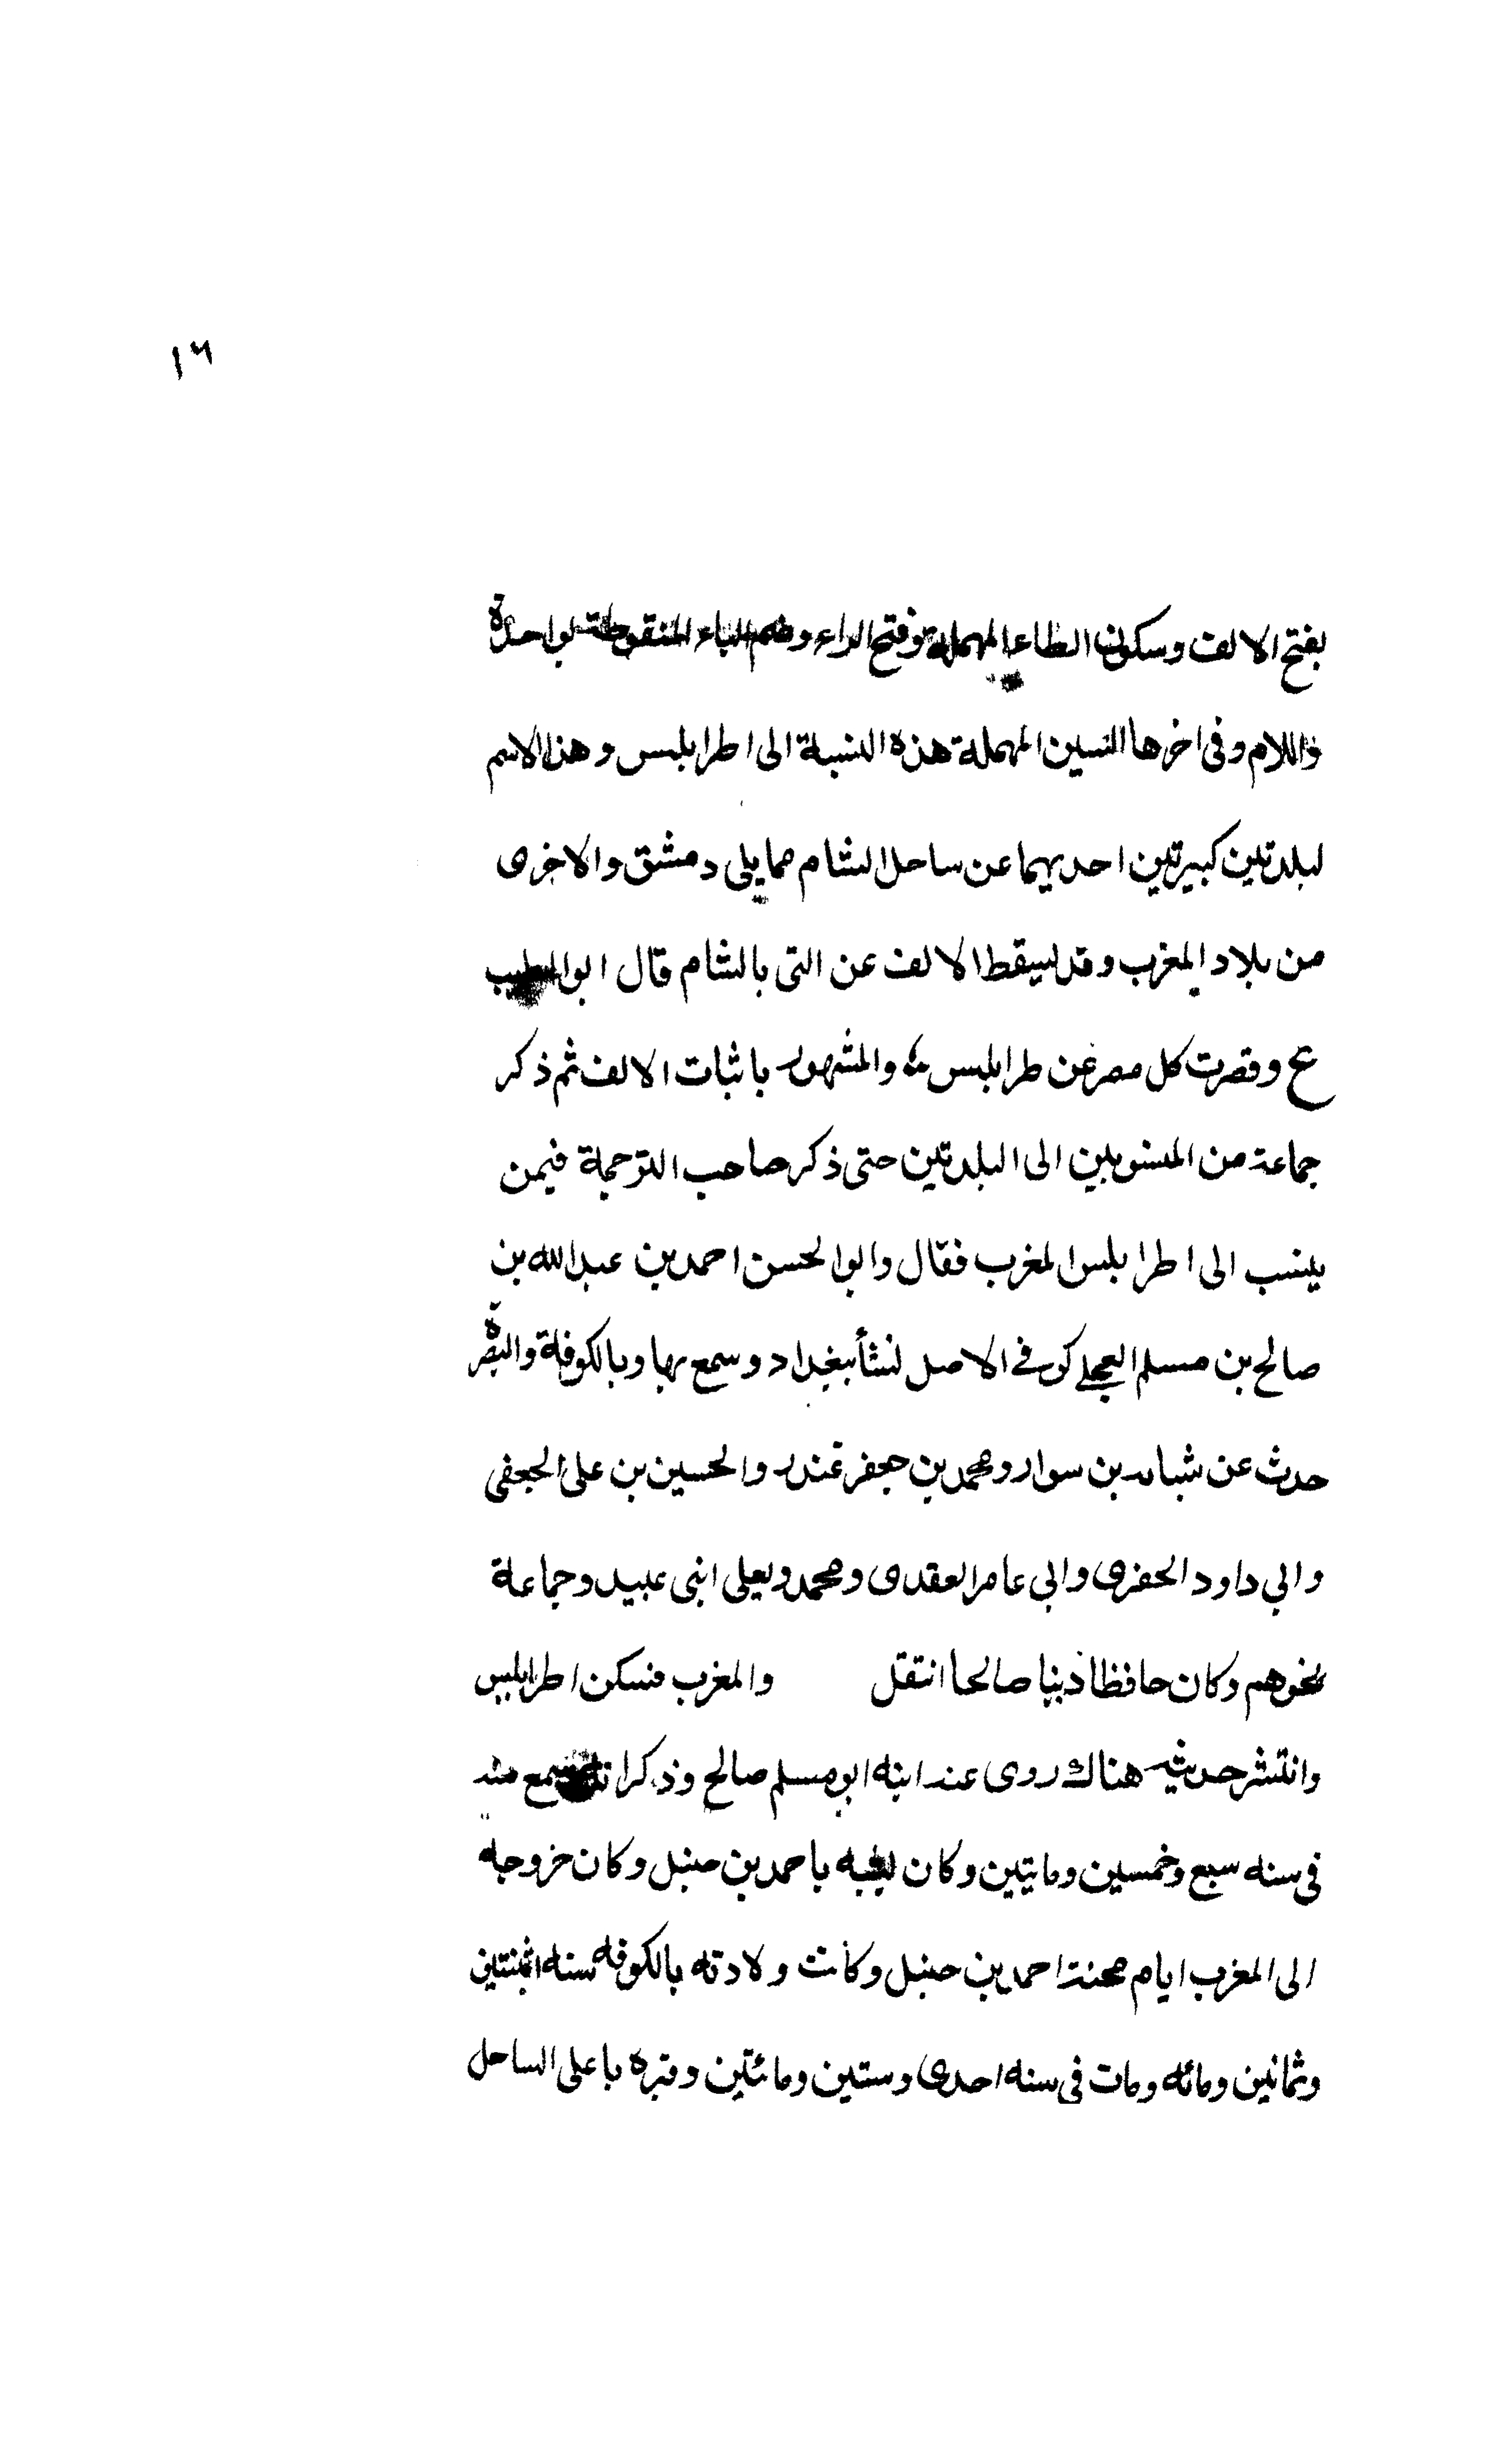 ١٦
بفتح الالف وسكون الطاء المهملة وفتح الراء وضم الباء المنقوطة بواحدة
واللام وفى اخرها السين المهملة هذه النسبة الى اطرابلس وهذا الاسم
لبلدتين كبيرتين احديهما عن ساحل الشام مما يلى دمشق والاخرى
من بلاد المغرب وقد يسقط الالف عن التى بالشام قال ابو الطيب
ع وقصرت كل مصر عن طرابلس والمشهور باثبات الالف ثم ذكر
جماعة من المنسوبين الى البلدتين حتى ذكر صاحب الترجمة فيمن
ينسب الى اطرابلس المغرب فقال وابو الحسن احمد بن عبد الله بن
صالح بن مسلم العجلى كوفى الاصل نشأ ببغداد وسمع بها وبالكوفة والبصرة
حدث عن شبابه بن سوار ومحمد بن جعفر غندر والحسين بن على الجعفى
وابي داود الحفرى وابى عامر العقدى ومحمد ويعلى ابنى عبيد وجماعة
نحوهم وكان حافظا دينا صالحا انتقل والمغرب فسكن اطرابلس
وانتشر حديثه هناك روى عنه ابنه ابو مسلم صالح وذكر انه سمع منه
فى سنه سبع وخمسين ومايتين وكان يشبه باحمد بن حنبل وكان خروجه
الى المغرب ايام محنة احمد بن حنبل وكانت ولادته بالكوفه سنه اثنتين
وثمانين ومائه ومات فى سنه احدى وستين ومائتين وقبره باعلى الساحل